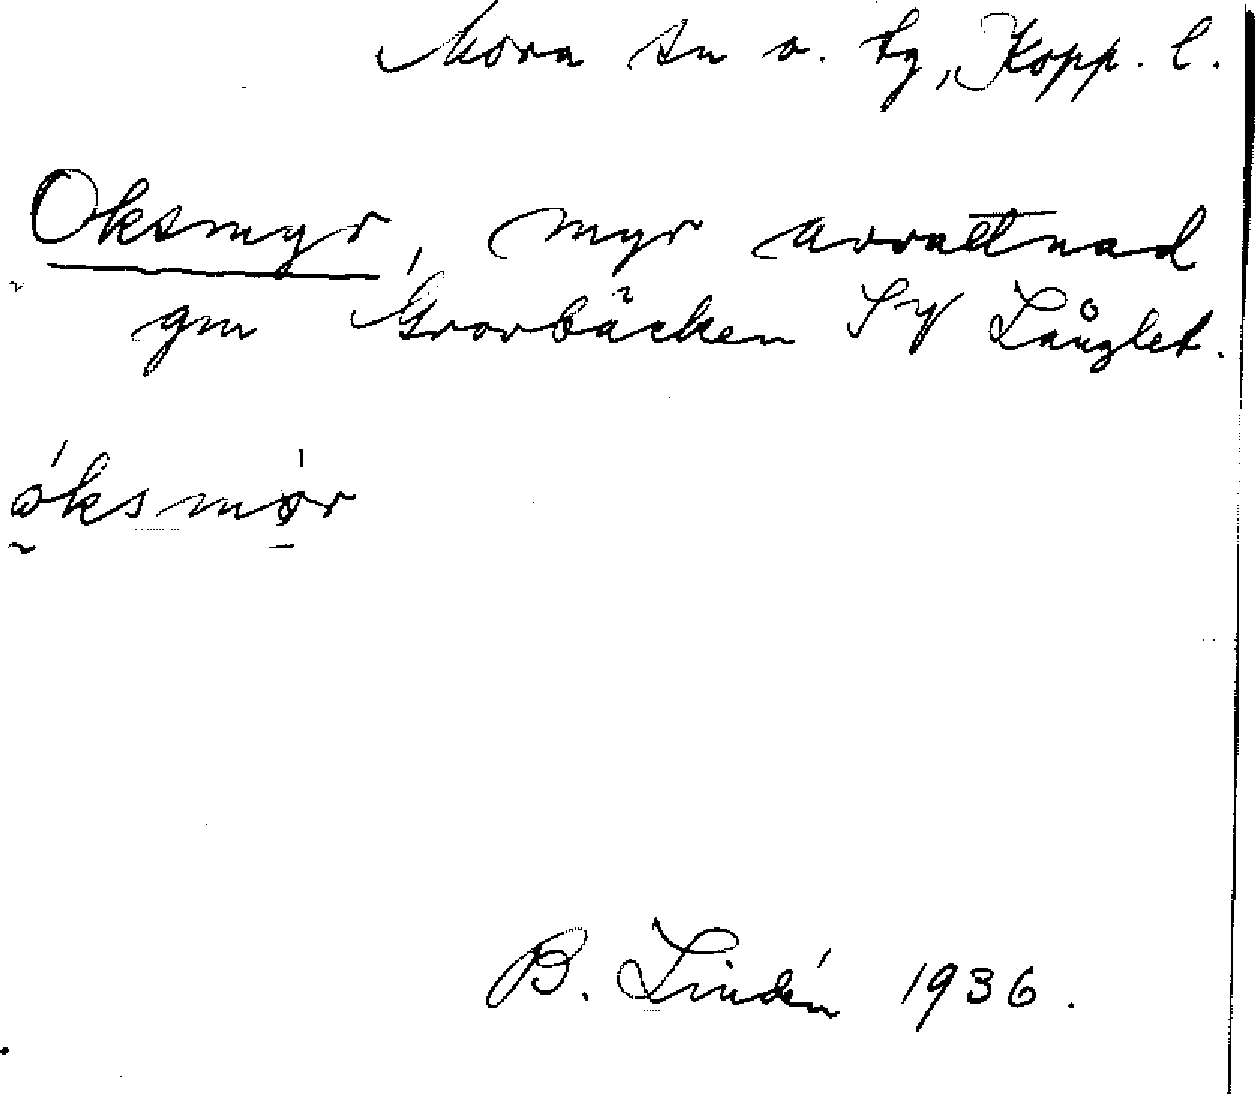 Mora sn o. tg, Kopp. l.
Oksmyr, myr avvattnad
gm Grovbäcken SV Långlet.
óksmør
B. Lindén 1936.